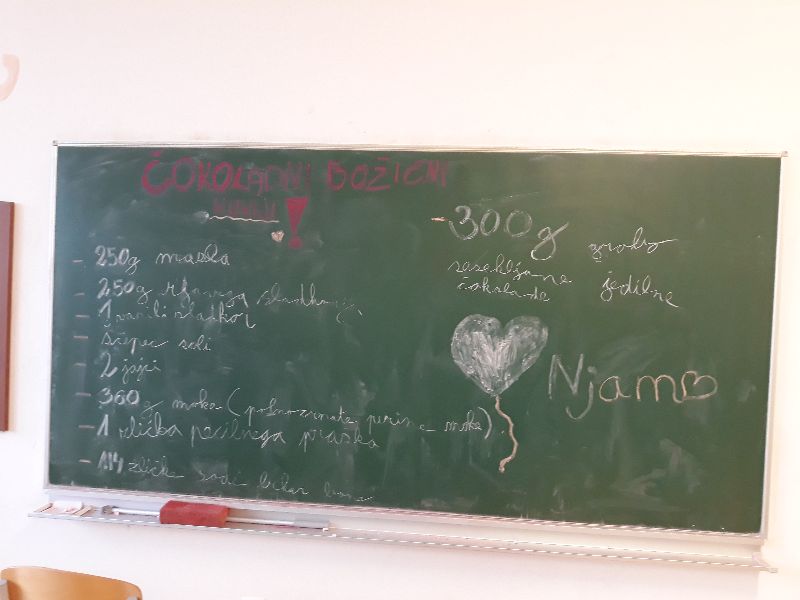 ČOKOLADNI BOŽIČNI
!
- 250g masla
- 250g rjavega sladkorja
- 1 vanili sladkor
- Ščepec soli
- 2 jajci
- 360 g moka (polnozrnate pirine moke)
- 1 žlička pecilnega praska
- 1/4 žličke sode bikar bone
- 300g grobo
sesekljane jedilne
čokolade
Njam